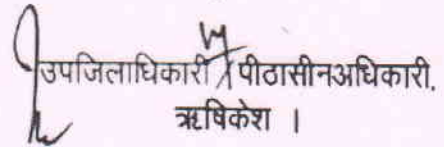 उपजिलाधिकारी / पीठासीनअधिकारी.
ऋषिकेश ।